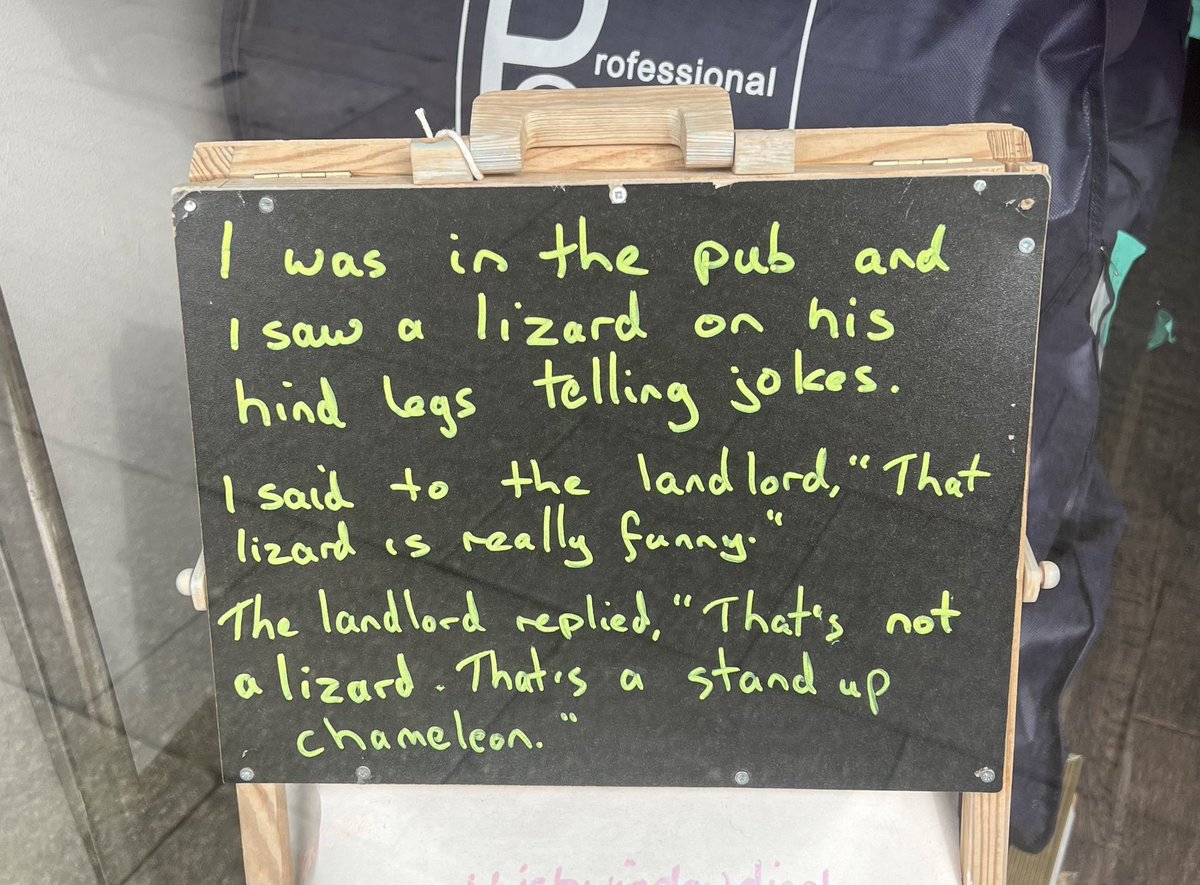 Professional
I was in the pub and
I saw a lizard on his
hind legs telling jokes.
I said to the landlord, "That
lizard is really funny."
The landlord replied, "That's not
a lizard. That's a stand up
chameleon."